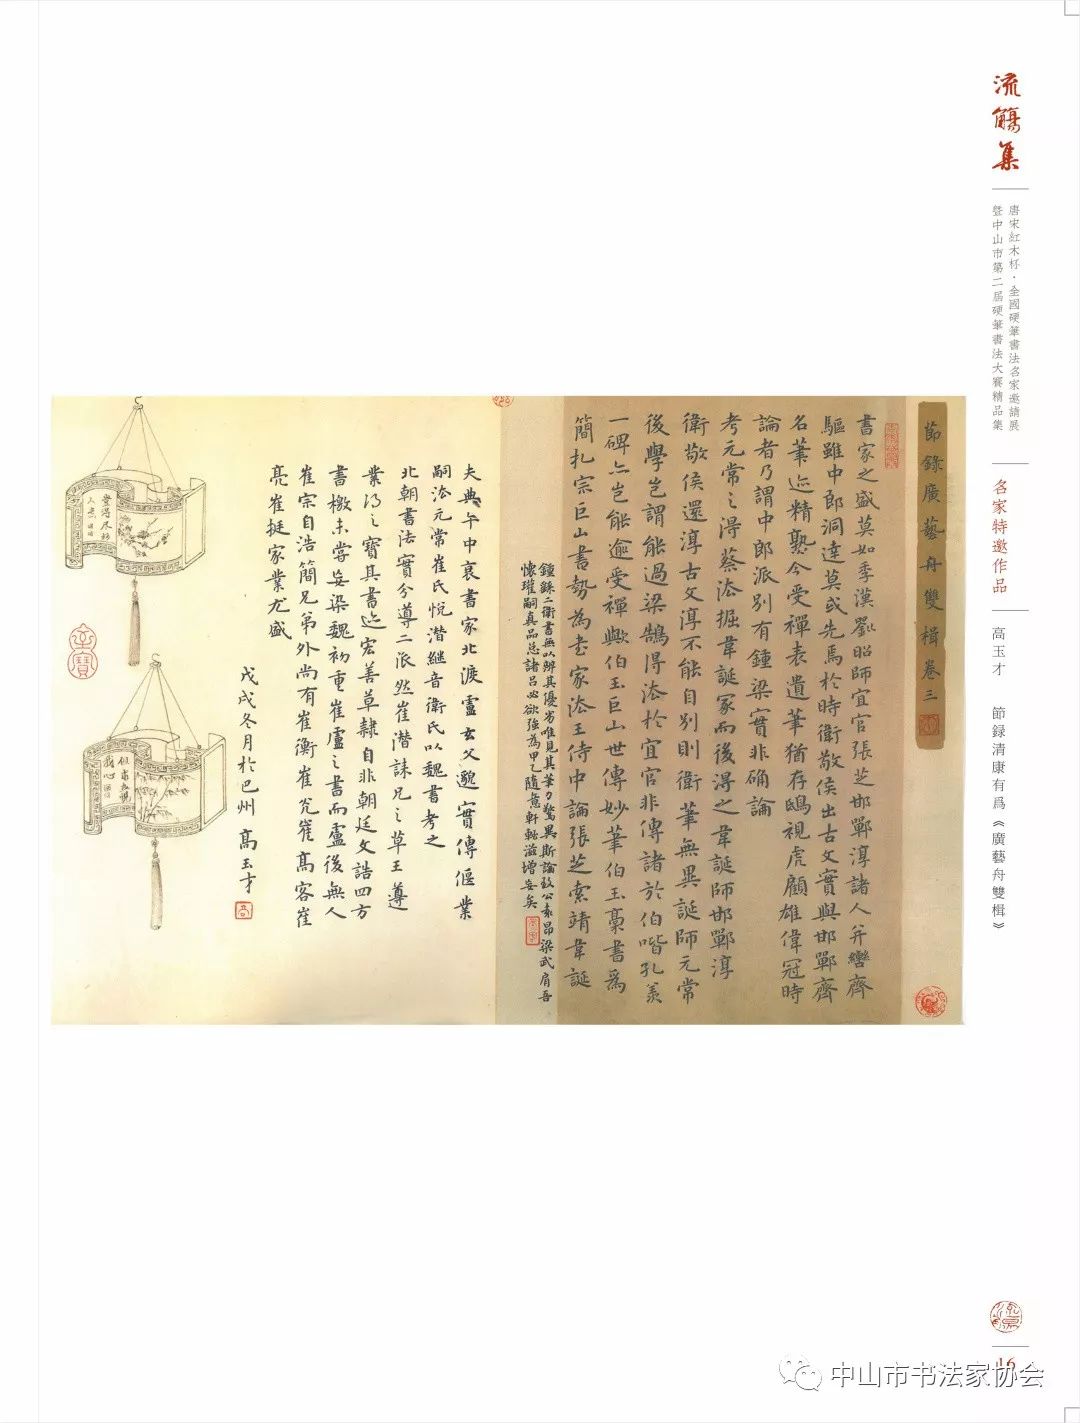 流觴集
唐宋紅木杯·全國硬筆書法名家邀請展
暨中山市第二屆硬筆書法大賽精品集
名家特邀作品
高玉才 節録清康有爲《廣藝舟雙楫》
節錄廣藝舟雙楫卷三
書家之盛莫如季漢劉昭師宜官張芝邯鄲淳諸人并轡齊
驅雖中郎洞達莫或先焉於時衛敬侯出古文實與邯鄲齊
名筆迹精熟今受禪表遺筆猶存鴟視虎顧雄偉冠時
論者乃謂中郎派別有鍾梁實非确論
考元常之得蔡法掘韋誕冢而後得之韋誕師邯鄲淳
衛敬侯還淳古文淳不能自別則衛筆無異誕師元常
後學豈謂能過梁鵠得法於宜官非傳諸於伯喈孔羨
一碑亦豈能逾受禪歟伯玉巨山世傳妙筆伯玉藁書為
簡札宗巨山書勢為書家法王侍中論張芝索靖韋誕
鍾繇二衛書無以辨其優劣唯見其筆力驚異斯論致公袁昂梁武肩吾
懷瓘嗣真品总諸吕必欲強為甲乙隨意軒輊滋增妄矣
夫典午中衰書家北渡盧玄父邈實傳偃業
嗣法元常崔氏悅潛繼音衛氏以魏書考之
北朝書法實分導二派然崔潛誄兄之草王遵
業得之寶其書迹宏善草隸自非朝廷文誥四方
書檄未嘗妄染魏初重崔盧之書而盧後無人
崔宗自浩簡兄弟外尚有崔衡崔光崔高客崔
亮崔挺家業尤盛
戊戌冬月於巴州 高玉才
16
中山市书法家协会